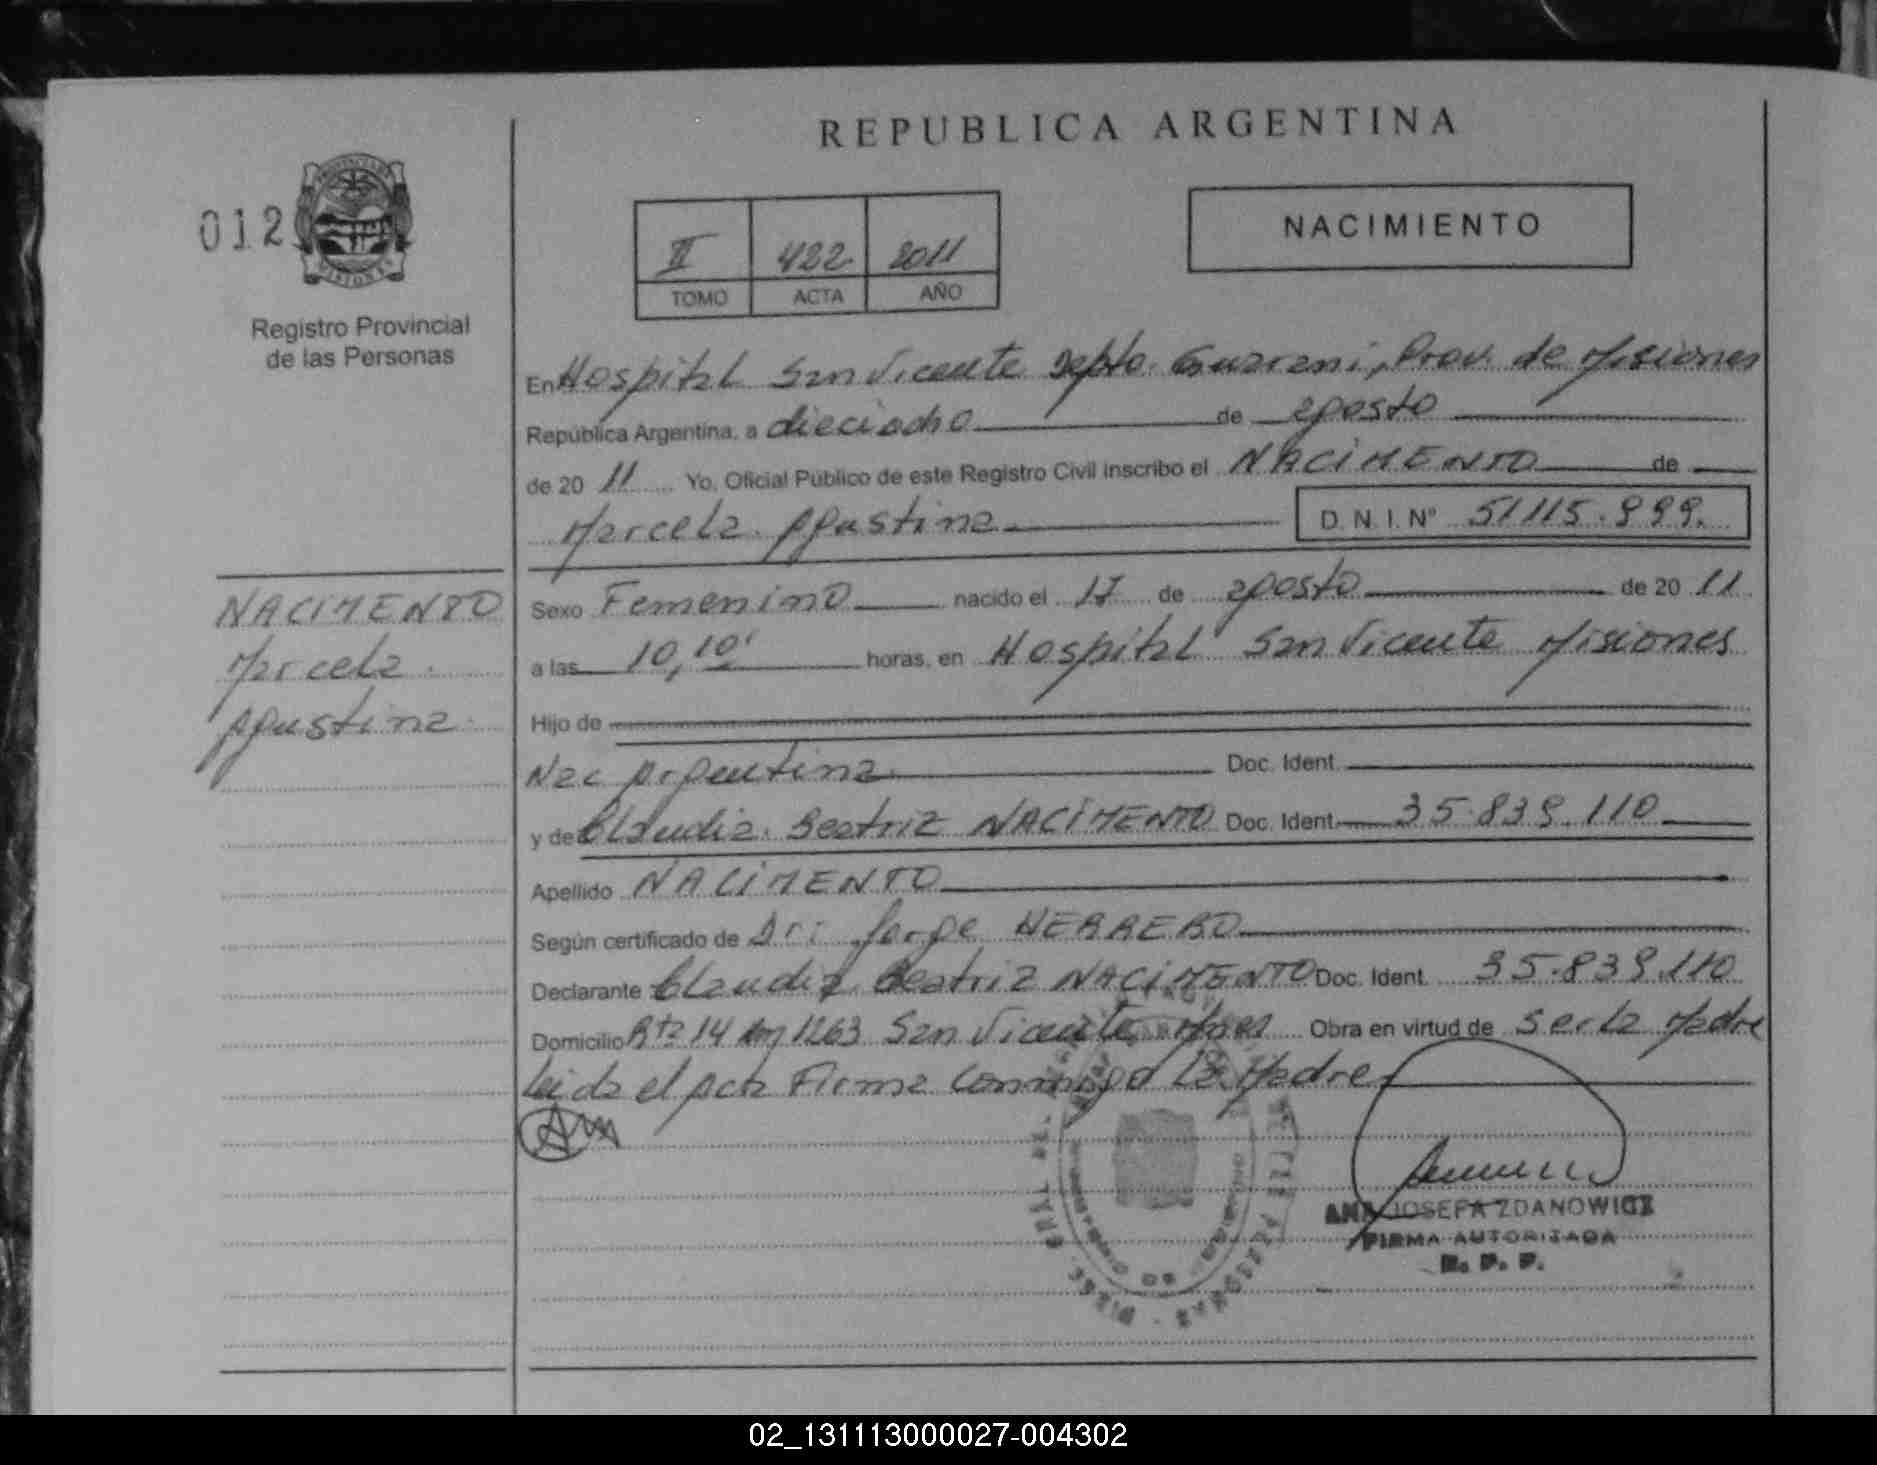 REPUBLICA ARGENTINA
012
Registro Provincial
de las Personas
II 422 2011
TOMO ACTA AÑO
NACIMIENTO
En Hospital San Vicente Depto. Guarani, Prov. de Misiones
República Argentina, a dieciocho de agosto
de 20 11 Yo, Oficial Público de este Registro Civil inscribo el NACIMENTO de
Marcela Agustina D.N.I. Nº 51115.999.
NACIMENTO
Marcela
Agustina
Sexo Femenino nacido el 17 de agosto de 20 11
a las 10,10' horas, en Hospital San Vicente Misiones
Hijo de
Nac Argentina Doc. Ident.
y de Claudia Beatriz NACIMENTO Doc. Ident. 35.839.110
Apellido NACIMENTO
Según certificado de Dr: Jorge HERRERO
Declarante Claudia Beatriz NACIMENTO Doc. Ident. 35.839.110
Domicilio Rta 14 Km 1263 San Vicente Mnes Obra en virtud de ser la Madre
Leida el acta Firma Conmigo La Madre
ANA JOSEFA ZDANOWICZ
FIRMA AUTORIZADA
R. P. P.
02_131113000027-004302